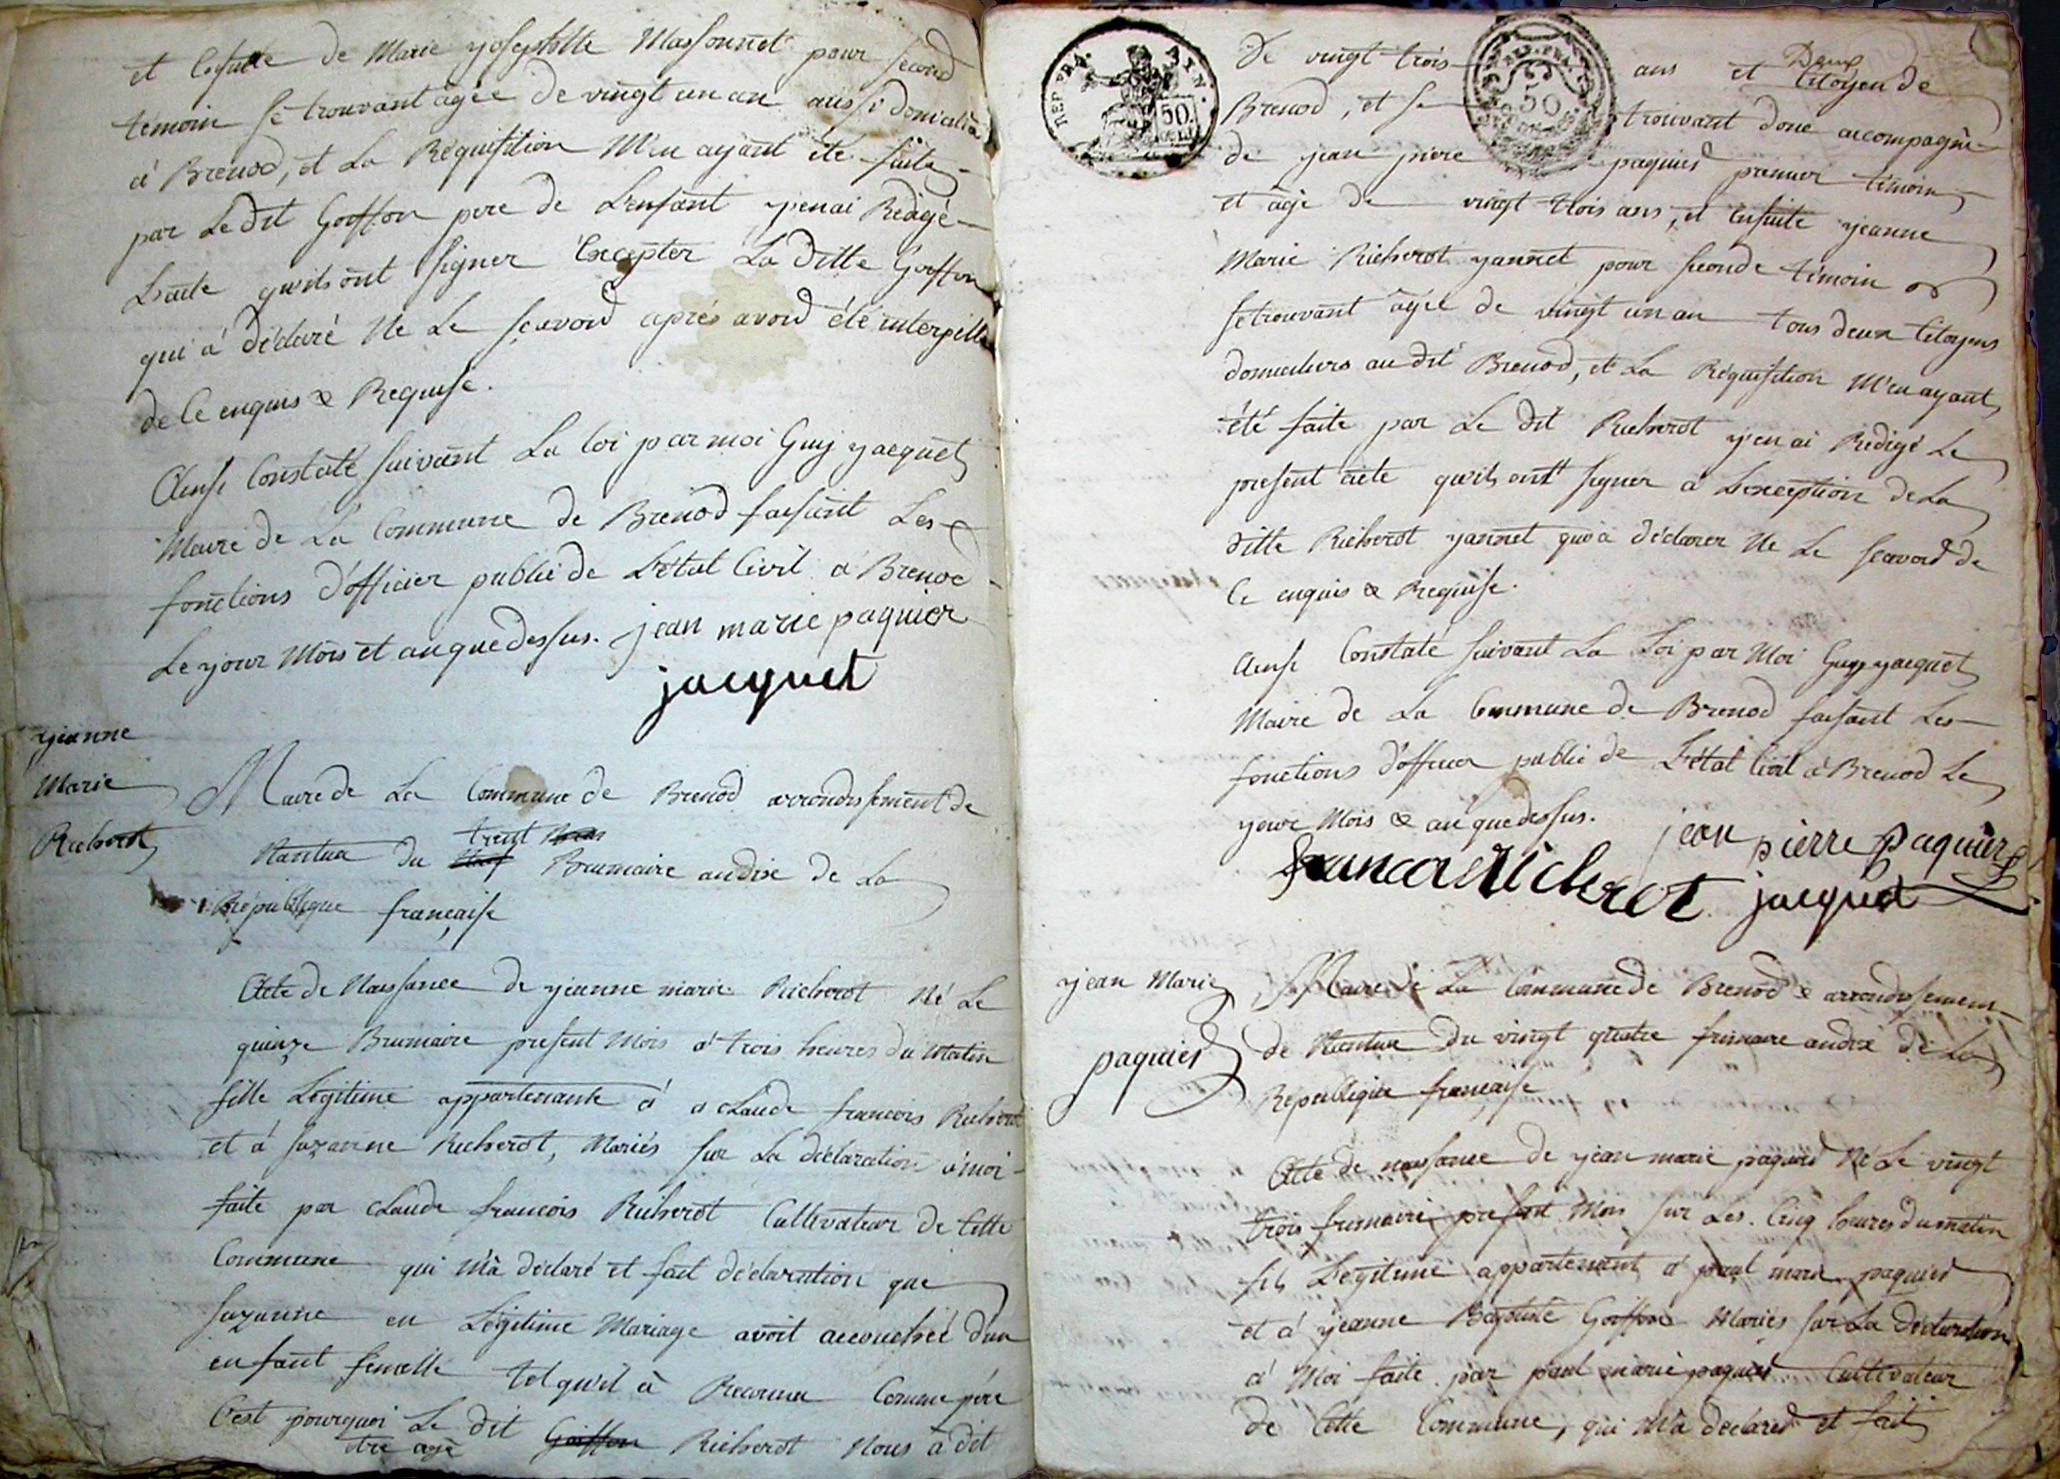 et Ensuitte de Marie yosephtte Massonnet pour second
témoin se trouvant agée de vingt un an aussi domicilié
à Brenod, et La Requisition M'en ayant été faite
par Le dit Goiffon pere de L'enfant yenai Redigé
L'acte qu'ils ont signer Excepter La ditte Goiffon
qui à déclaré Ne Le scavoir aprés avoir été interpillé
de Ce enquis & Requise.
Ainsi Constaté suivant La loi par moi Guy yacquet
Maire de La Commune de Brenod faisant Les
fonctions d'officier public de L'état Civil à Brenod
Le your Mois et an que dessus. jean marie paquier
jacquet
yeanne
Marie
Richerot
Mairie de La Commune de Brenod arrondissement de
trent
Nantua du Brumaire an dix de La
République française
Acte de Naissance de yeanne marie Richerot Né Le
quinze Brumaire present Mois à trois heures du Matin
fille Légitime appartenante à Claude francois Richerot
et à suzanne Richerot, Mariés sur La déclaration à moi
faite par Claude francois Richerot Cultivateur de Cette
Commune qui M'à déclaré et fait déclaration que
suzanne en Légitime Mariage avoit accouchée d'un
enfant femelle tel qu'il à Reconnu Comme pére
C'est pourquoi Le dit Goiffon Richerot Nous à dit
étre agé
REP. FRA. 50
50
De vingt trois ans et Citoyen de
Deux
Brenod, et se trouvant donc accompagné
de jean piere paquier premier témoin
et agé de vingt trois ans, et Ensuite yeanne
Marie Richerot yannet pour seconde témoin
se trouvant agée de vingt un an tous deux Citoyens
domiciliers au dit Brenod, et La Réquisition M'en ayant
été faite par Le dit Richerot y'en ai Redigé Le
present acte qu'ils ont signer à L'exception de La
ditte Richerot yannet qui à déclarer Ne Le scavoir de
Ce enquis & Requise.
Ainsi Constaté suivant La Loi par Moi Guy yacquet
Maire de La Commune de Brenod faisant Les
fonctions d'officier public de L'état Civil à Brenod Le
your Mois & an que dessus. jean pierre paquier
francoi Richerot jacquet
yean Marie
paquier
Mairie de La Commune de Brenod & arrondissement
de Nantua du vingt quatre frimaire an dix de La
République française
Acte de naissance de yean marie paquier Né Le vingt
trois frimaire present Mois sur Les Cinq heures du matin
fils Légitime appartenant à paul marie paquier
et à yeanne Baptiste Goiffon Mariés sur La déclaration
à Moi faite par paul marie paquier Cultivateur
de Cette Commune, qui M'à déclarer et fait